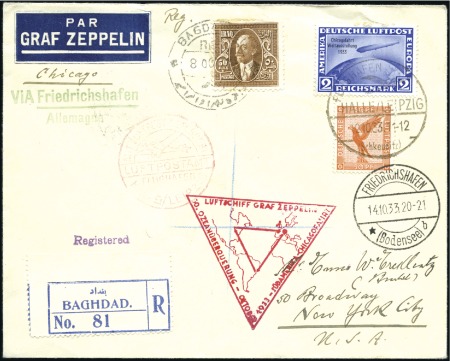 PAR
GRAF ZEPPELIN
Reg.
Chicago
ViA Friedrichshafen
Allemagne
BAGHDAD
8 OC
50
50
DEUTSCHE LUFTPOST
AMERIKA
EUROPA
Chicagofahrt
Weltausstellung
1933
2 REICHSMARK 2
HALLE/LEIPZIG
10.33.11-12
FRIEDRICHSHAFEN
14.10.33.20-21
(Bodensee) b
LUFTPOST
LUFTSCHIFF GRAF ZEPPELIN
50. OZEANÜBERQUERUNG - OKTOBER 1933 - CHICAGOFAHRT
Registered
بغداد
BAGHDAD.
R
No. 81
James W.
50 Broadway
New York City
U.S.A